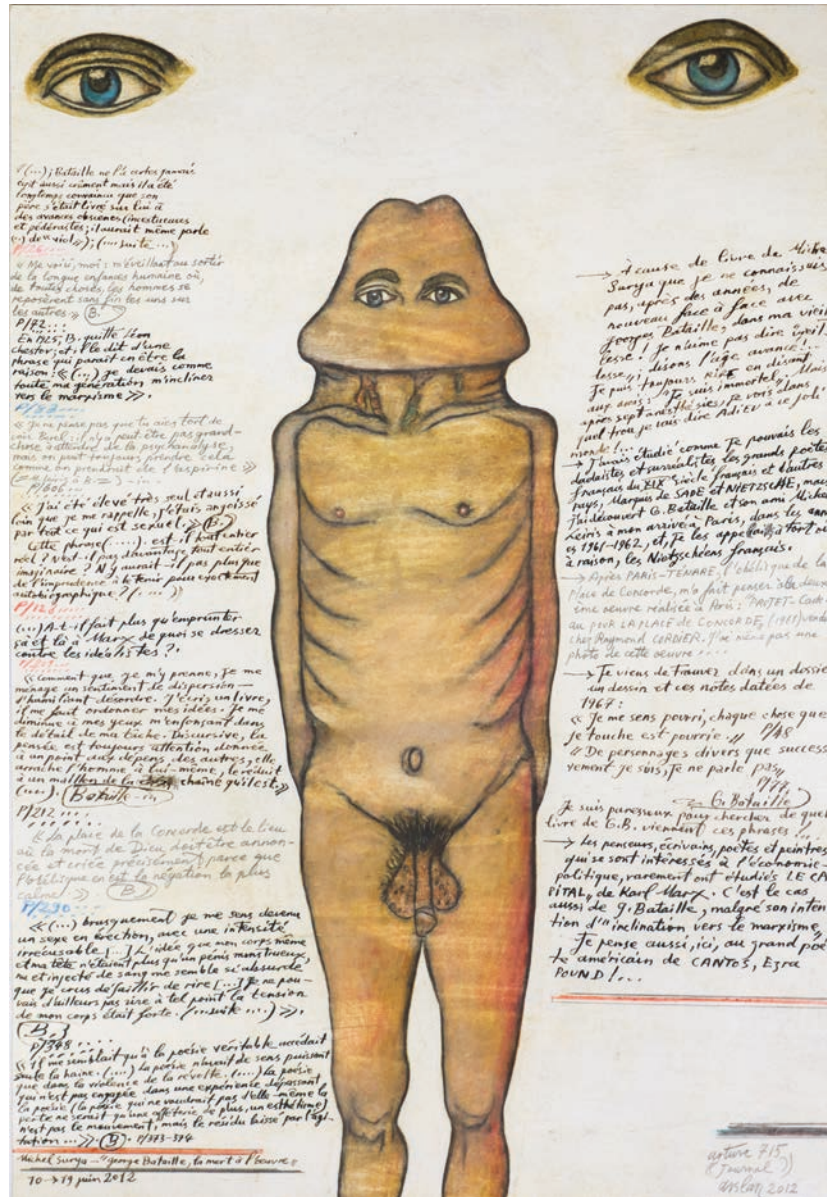 «(...); Bataille ne l'a certes jamais
écrit aussi crûment mais il a été
longtemps convaincu que son
père s'était livré sur lui à
des avances obscènes (incestueuses
et pédérastes; il aurait même parlé
(..) de «viol»); (...suite...)
« Me voici, moi: m'éveillant au sortir
de la longue enfance humaine où,
de toutes choses, les hommes se
reposèrent sans fin les uns sur
les autres.» B.
P/72...
En 1925, B. quitte Léon
Chestov; et il le dit d'une
phrase qui paraît en être la
raison: «(...) je devais comme
toute ma génération m'incliner
vers le marxisme».
« Je ne pense pas que tu aies tort de
voir Borel: il n'y a peut-être pas grand-
chose à attendre de la psychanalyse,
mais on peut toujours prendre cela
comme on prendrait de l'aspirine »
«J'ai été élevé très seul et aussi
loin que je me rappelle, j'étais angoissé
par tout ce qui est sexuel.» B.
Cette phrase (.....) est-il tout entier
réel? N'est-il pas davantage tout entier
imaginaire? N'y aurait-il pas plus que
de l'imprudence à tenir pour exactement
autobiographique? (....)
P/12
(...) A-t-il fait plus qu'emprunter
ça et là à Marx de quoi se dresser
contre les idéalistes?.
«Comment que je m'y prenne, je me
ménage un sentiment de dispersion —
d'humiliant désordre. J'écris un livre,
il me faut ordonner mes idées. Je me
diminue à mes yeux m'enfonçant dans
le détail de ma tâche. Discursive, la
pensée est toujours attention donnée
à un point aux dépens des autres, elle
arrache l'homme à lui-même, le réduit
à un maillon de la chaîne qu'il est.»
(...). Bataille - in
P/212...
« La place de la Concorde est le lieu
où la mort de Dieu doit être annon-
cée et criée précisément parce que
l'obélisque en est la négation la plus
calme.» B
P/230...
«(...) brusquement je me sens devenu
un sexe en érection, avec une intensité
irrécusable [...] L'idée que mon corps même
et ma tête n'étaient plus qu'un pénis monstrueux,
nu et injecté de sang me semble si absurde
que je crus défaillir de rire [...] Je ne pou-
vais d'ailleurs pas rire à tel point la tension
de mon corps était forte. (...suite...)».
B.
P/348....
« Il me semblait qu'à la poésie véritable accédait
seule la haine. (....) La poésie n'avait de sens puissant
que dans la violence de la révolte. (....) La poésie
qui n'est pas engagée dans une expérience dépassant
la poésie (la poésie qui ne vaudrait pas d'elle-même la
perte ne serait qu'une afféterie de plus, un esthétisme)
n'est pas le mouvement, mais le résidu laissé par l'agi-
tation...» B. P/373-374
Michel Surya — "George Bataille, la mort à l'œuvre"
10 → 19 juin 2012
→ À cause de livre de Michel
Surya que je ne connaissais
pas, après des années, de
nouveau face à face avec
Georges Bataille, dans ma vieil
lesse. Je n'aime pas dire "vieil
lesse"; disons l'âge avancé!..
Je puis toujours RIRE en disant
aux amis: "Je suis immortel". Mais
après sept anesthésies, je vois dans
quel trou je vais dire ADiEU à ce joli
monde!...
→ J'avais étudié comme je pouvais les
dadaïstes et surréalistes, les grands poètes
français du XIX siècle français et d'autres
pays, Marquis de SADE et NIETZSCHE, mais
j'ai découvert G. Bataille et son ami Michel
Leiris à mon arrivée à Paris, dans les anné
es 1961-1962, et, je les appelais à tort ou
à raison, les Nietzschéens français.
→ Après PARIS-TÉNARE, l'obélisque de la
place de Concorde, m'a fait penser à la deux
ième œuvre réalisée à Paris: "PROJET-Cade
au pour LA PLACE de CONCORDE, (1961) vendu
chez Raymond CORDIER. J'ai même pas une
photo de cette œuvre.....
→ Je viens de trouver dans un dossier
un dessin et ces notes datées de
1967:
« Je me sens pourri, chaque chose que
je touche est pourrie.» P/48
« De personnages divers que success
vement je suis, je ne parle pas»
P/77
G. Bataille
Je suis paresseux pour chercher de quel
livre de G.B. viennent ces phrases!..
→ Les penseurs, écrivains, poètes et peintres
qui se sont intéressés à l'économie-
politique, rarement ont étudiés LE CA
PITAL, de Karl Marx. C'est le cas
aussi de G. Bataille, malgré son inten
tion d'"inclination vers le marxisme".
Je pense aussi, ici, au grand poè
te américain de CANTOS, Ezra
POUND!...
arture 715
(Journal 7)
arslan 2012